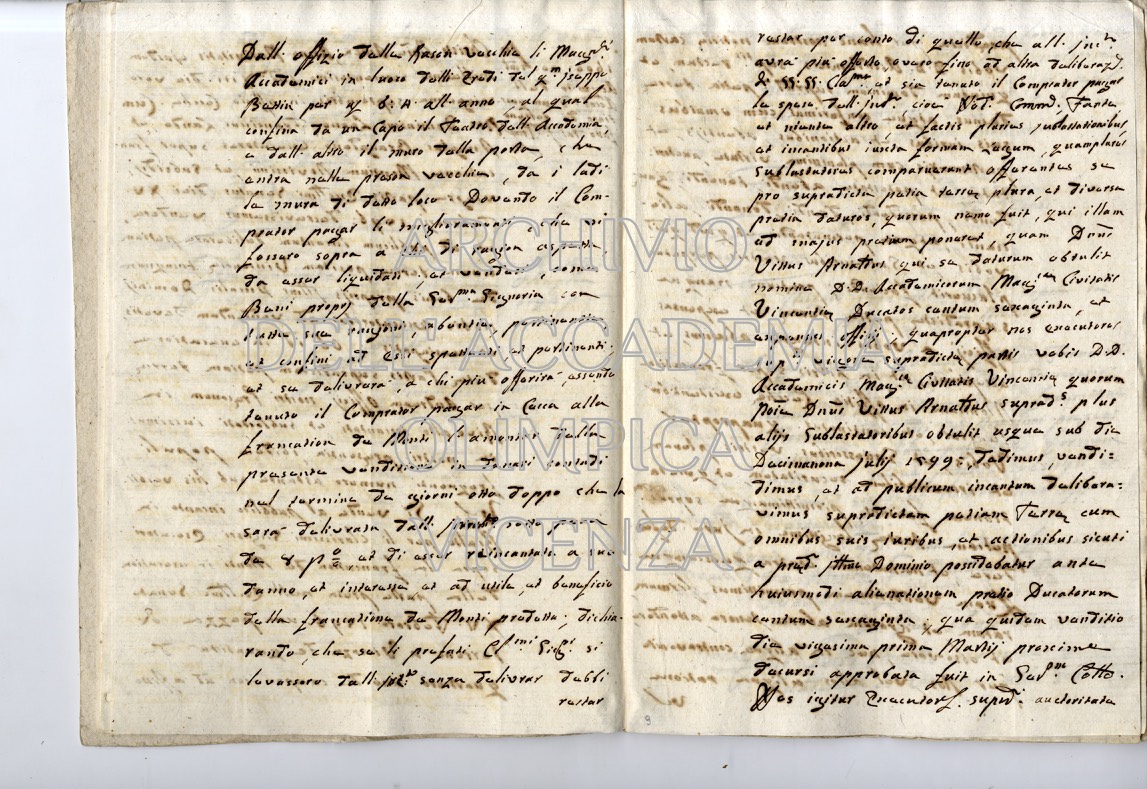 Dall' offizio della Rason vecchia li Mag.ci
Accademici in luoco delli Eredi del q.m Iseppo
Bettin per
all' anno, al qual
confina da un Capo il Teatro dell' Accademia,
e dall' altro il muro della porta, che
entra nella preson vecchia, da i ladi
la mura di detto loco. Dovendo il Com-
prator pagar li miglioramenti, che vi
fossero sopra a chi di ragion aspetta
da esser liquidati, et venduti, come
Beni proprij della Ser.ma Signoria con
tutte sue ragioni, abentie, pertinentie,
et confini ad essi spettanti, et pertinenti;
et se deliverà, a chi più offerirà, essendo
tenuto il Comprator pagar in Cecca alla
francation de Monti l' amontar della
presente venditione in denari contadi
nel termine de giorni otto doppo che la
sarà deliverata dall' sotto pena
de et di esser reincantate a suo
danno, et interesse, et ad utile, et beneficio
della francatione de Monti predetta; dichia-
rando, che se li prefati Cl.mi Sig.ri si
levassero dall' senza delivrar debbi
restar
restar per conto di quello, che all' inc.to
avrà più offerto overo fino ad altra deliberaz.
di SS. SS. Cl.me et sia tenuto il Comprator pagar
le spese dell' cioè Nod. Comand. Fante,
et niente altro, et factis pluries sublastationibus,
et incantibus iuxta formam Legum, quamplures
Sublastatores comparuerunt offerentes se
pro supradicta petia terrę plura, et diversa
pretia daturos, quorum nemo fuit, qui illam
ad majus pretium poneret, quam Dnus
Vittus Arnaldus qui se daturum obtulit
nomine D.D. Accademicorum Mag.cę Civitatis
Vincentię Ducatos centum sexaginta, et
expensas offitij; quapropter nos executores
vigore supradictę partis vobis D.D.
Accademicis Mag.cę Civitatis Vincentię quorum
Noie Dnus Vittus Arnaldus suprad.s plus
alijs Sublastatoribus obtulit usque sub die
Decimanona julij 1599: dedimus, vendi-
dimus, et ad publicum incantum delibera-
vimus supradictam petiam Terrę cum
omnibus suis iuribus, et actionibus sicuti
a pred. Dominio possidebatur ante
huiusmodi alienationem pretio Ducatorum
centum sexaginta; que quidem venditio
die vigesima prima Martij proxime
decursi approbata fuit in Ser.mo Colleg.
Nos igitur Executores supred. auctoritate
9
ARCHIVIO
DELL'ACCADEMIA
OLIMPICA
VICENZA